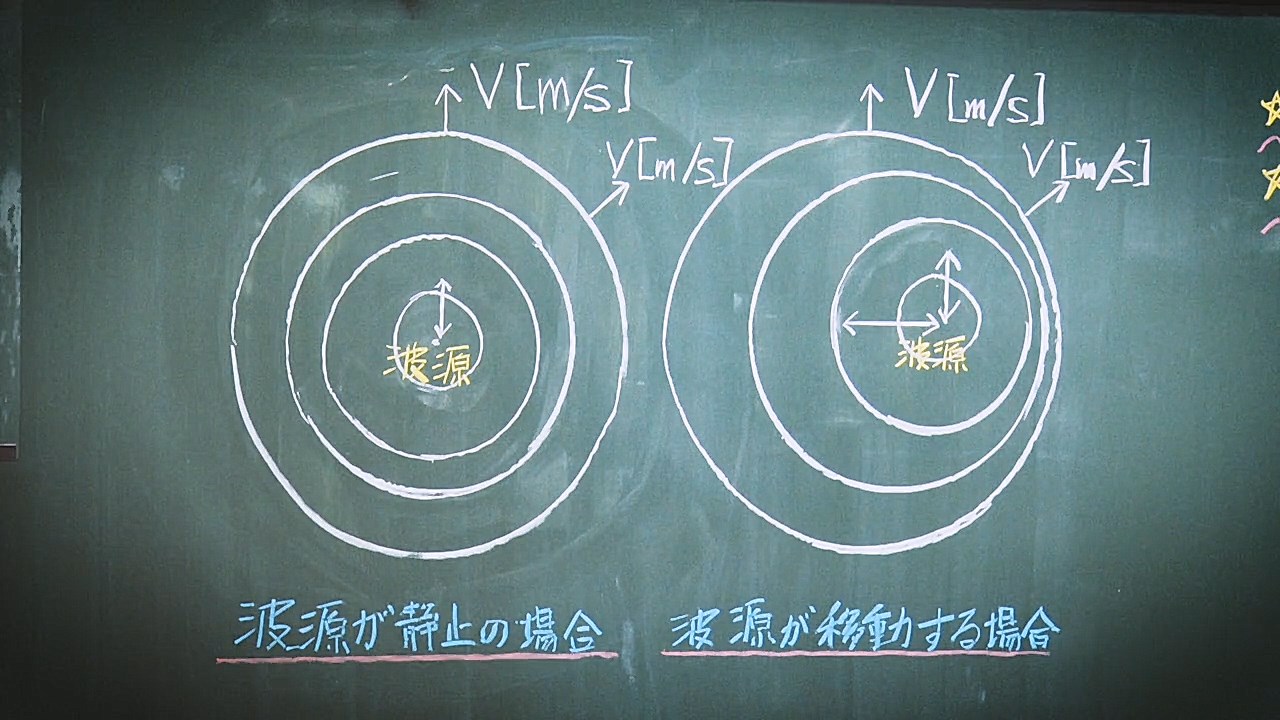 V[m/s]
V[m/s]
波源
波源が静止の場合
V[m/s]
V[m/s]
波源
波源が移動する場合